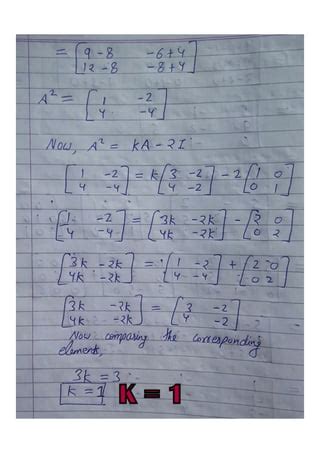 = [9-8 -6+4
12-8 -8+4]
A² = [1 -2
4 -4]
Now, A² = kA - 2I
[1 -2
4 -4] = k [3 -2
4 -2] - 2 [1 0
0 1]
[1 -2
4 -4] = [3k -2k
4k -2k] - [2 0
0 2]
[3k -2k
4k -2k] = [1 -2
4 -4] + [2 0
0 2]
[3k -2k
4k -2k] = [3 -2
4 -2]
Now comparing the corresponding
elements,
3k = 3
k = 1 K = 1